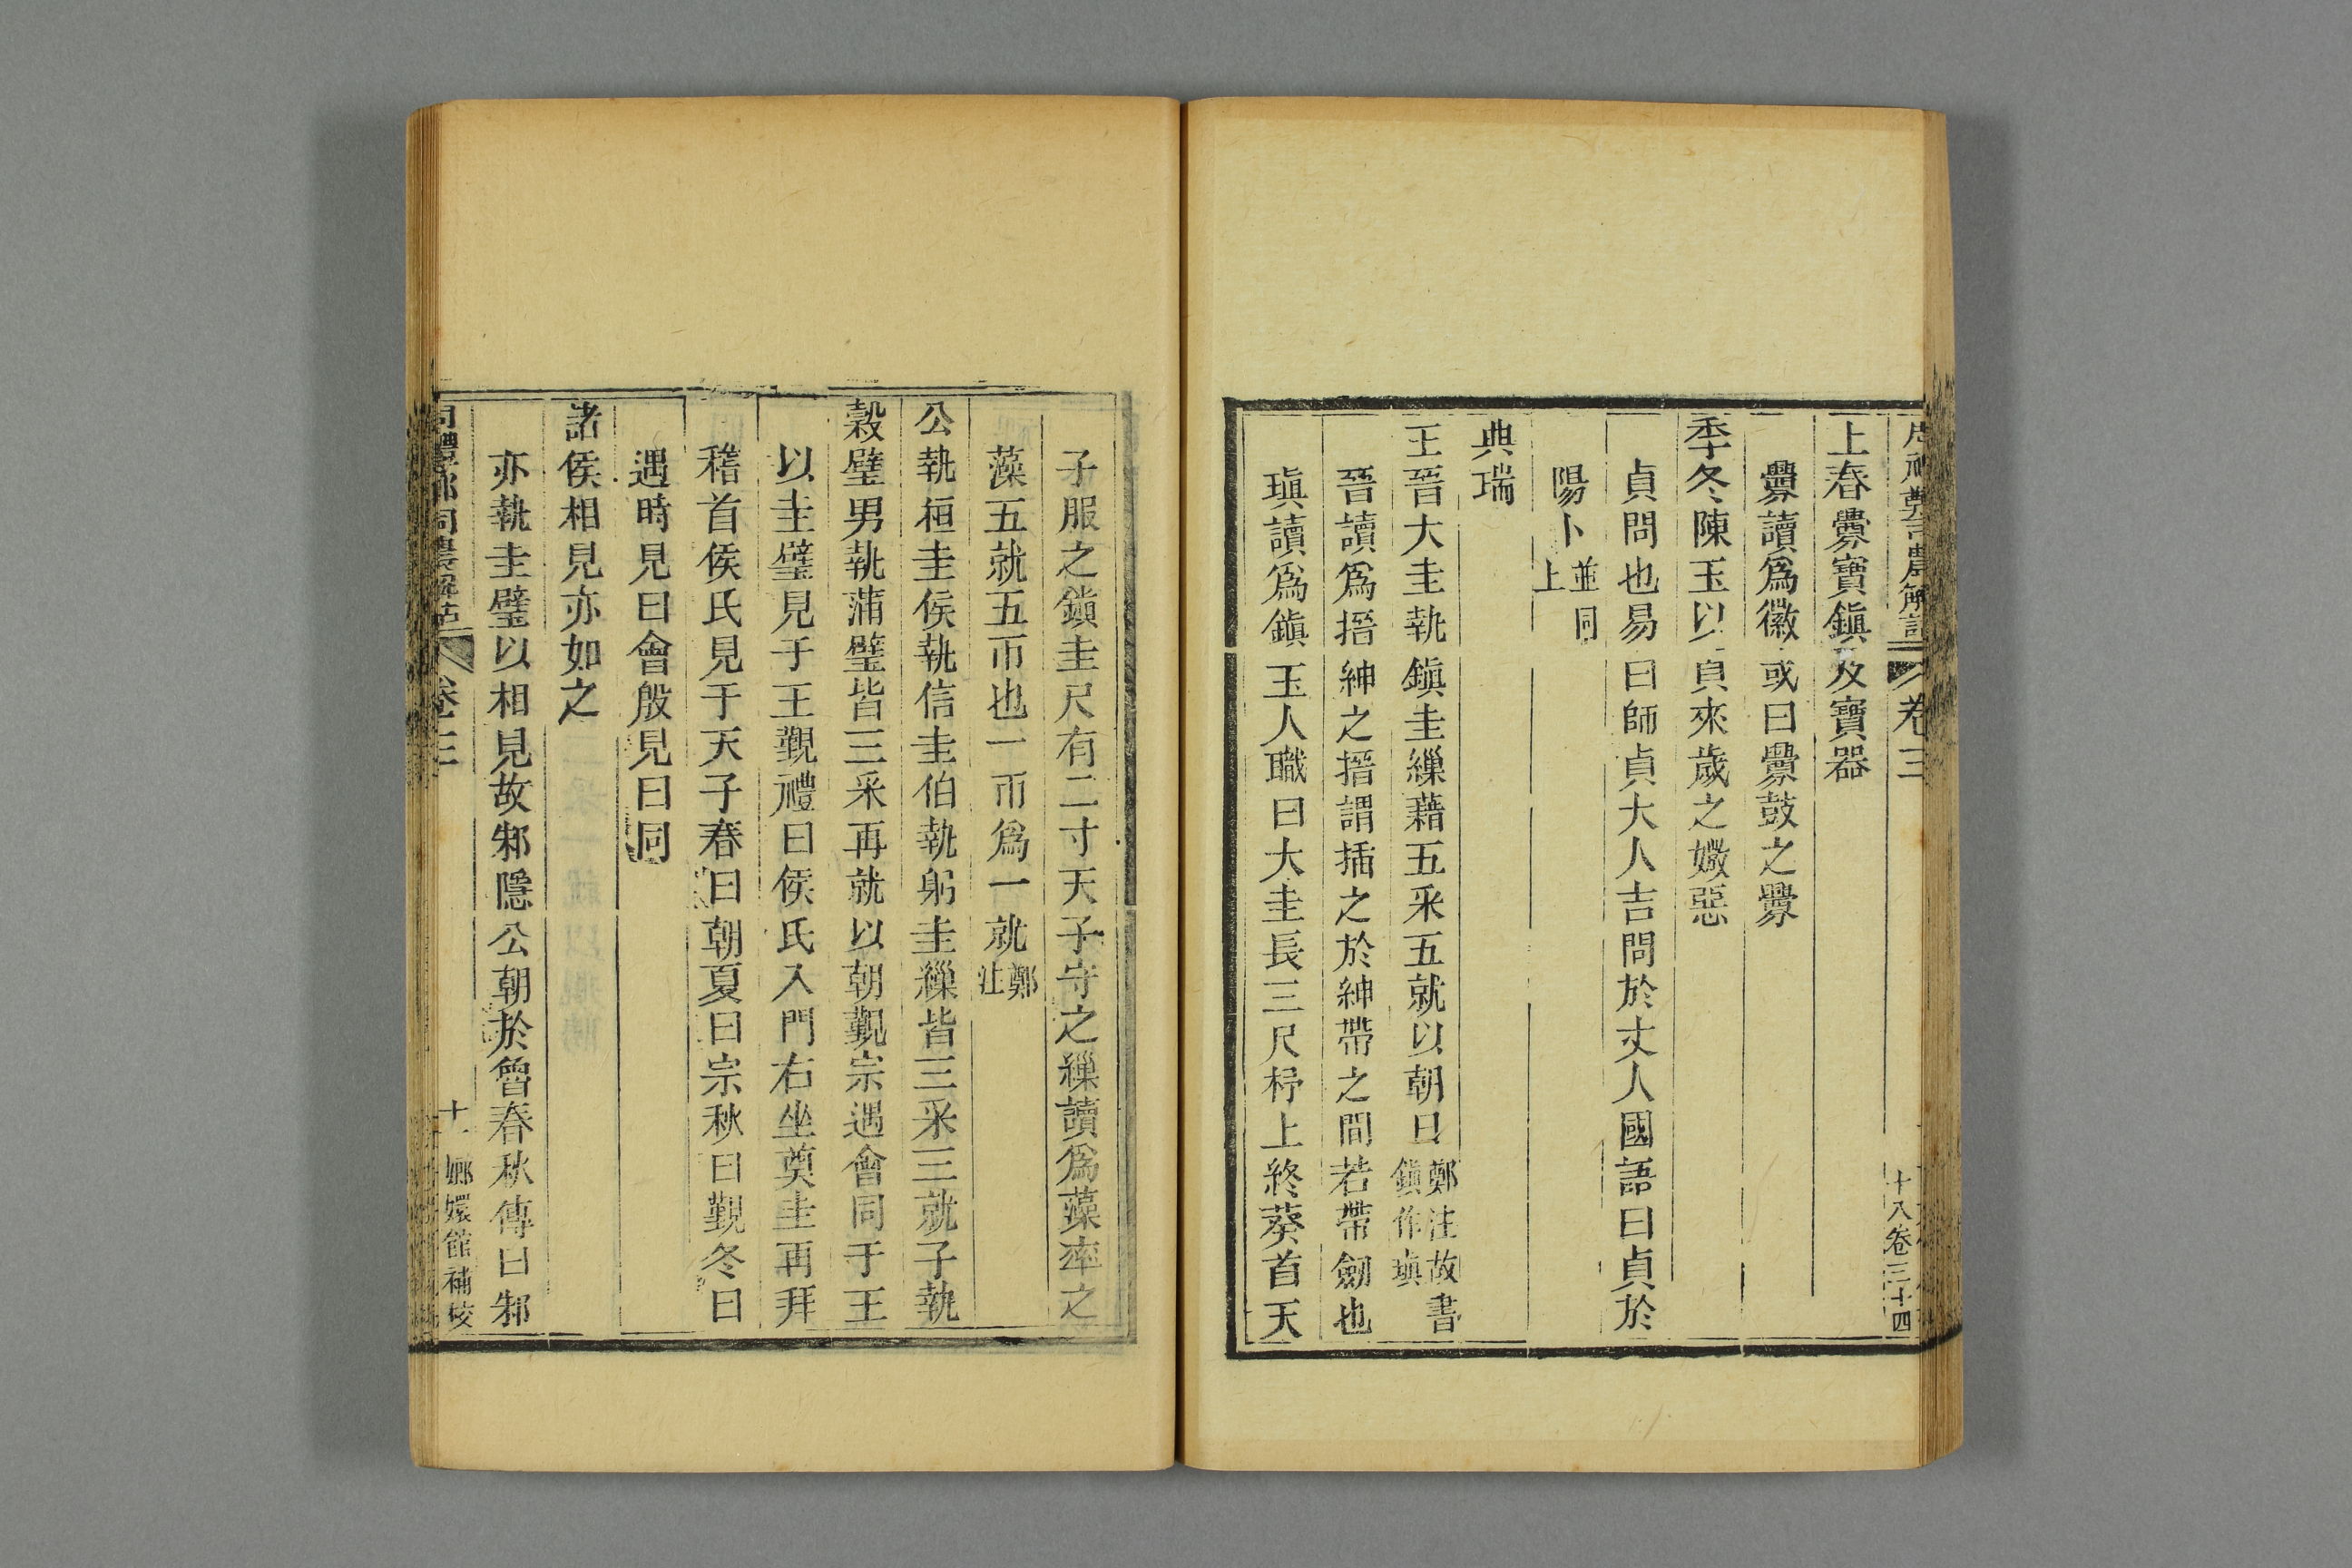 周禮鄭司農解詁 卷三 十八卷三十四
上春釁寶鎮及寶器
釁讀爲徽或曰釁鼓之釁
季冬陳玉以貞來歲之媺惡
貞問也易曰師貞大人吉問於丈人國語曰貞於
陽卜並同上
典瑞
王晉大圭執鎮圭繅藉五采五就以朝日鄭注故書鎮作瑱
晉讀爲搢紳之搢謂插之於紳帶之間若帶劒也
瑱讀爲鎮玉人職曰大圭長三尺杼上終葵首天
子服之鎮圭尺有二寸天子守之繅讀爲藻率之
藻五就五帀也一帀爲一就鄭注
公執桓圭侯執信圭伯執躬圭繅皆三采三就子執
榖璧男執蒲璧皆三采再就以朝覲宗遇會同于王
以圭璧見于王覲禮曰侯氏入門右坐奠圭再拜
稽首侯氏見于天子春曰朝夏曰宗秋曰覲冬曰
遇時見曰會殷見曰同
諸侯相見亦如之
亦執圭璧以相見故邾隱公朝於魯春秋傳曰邾
周禮鄭司農解詁 卷三 十一 嫏嬛館補校